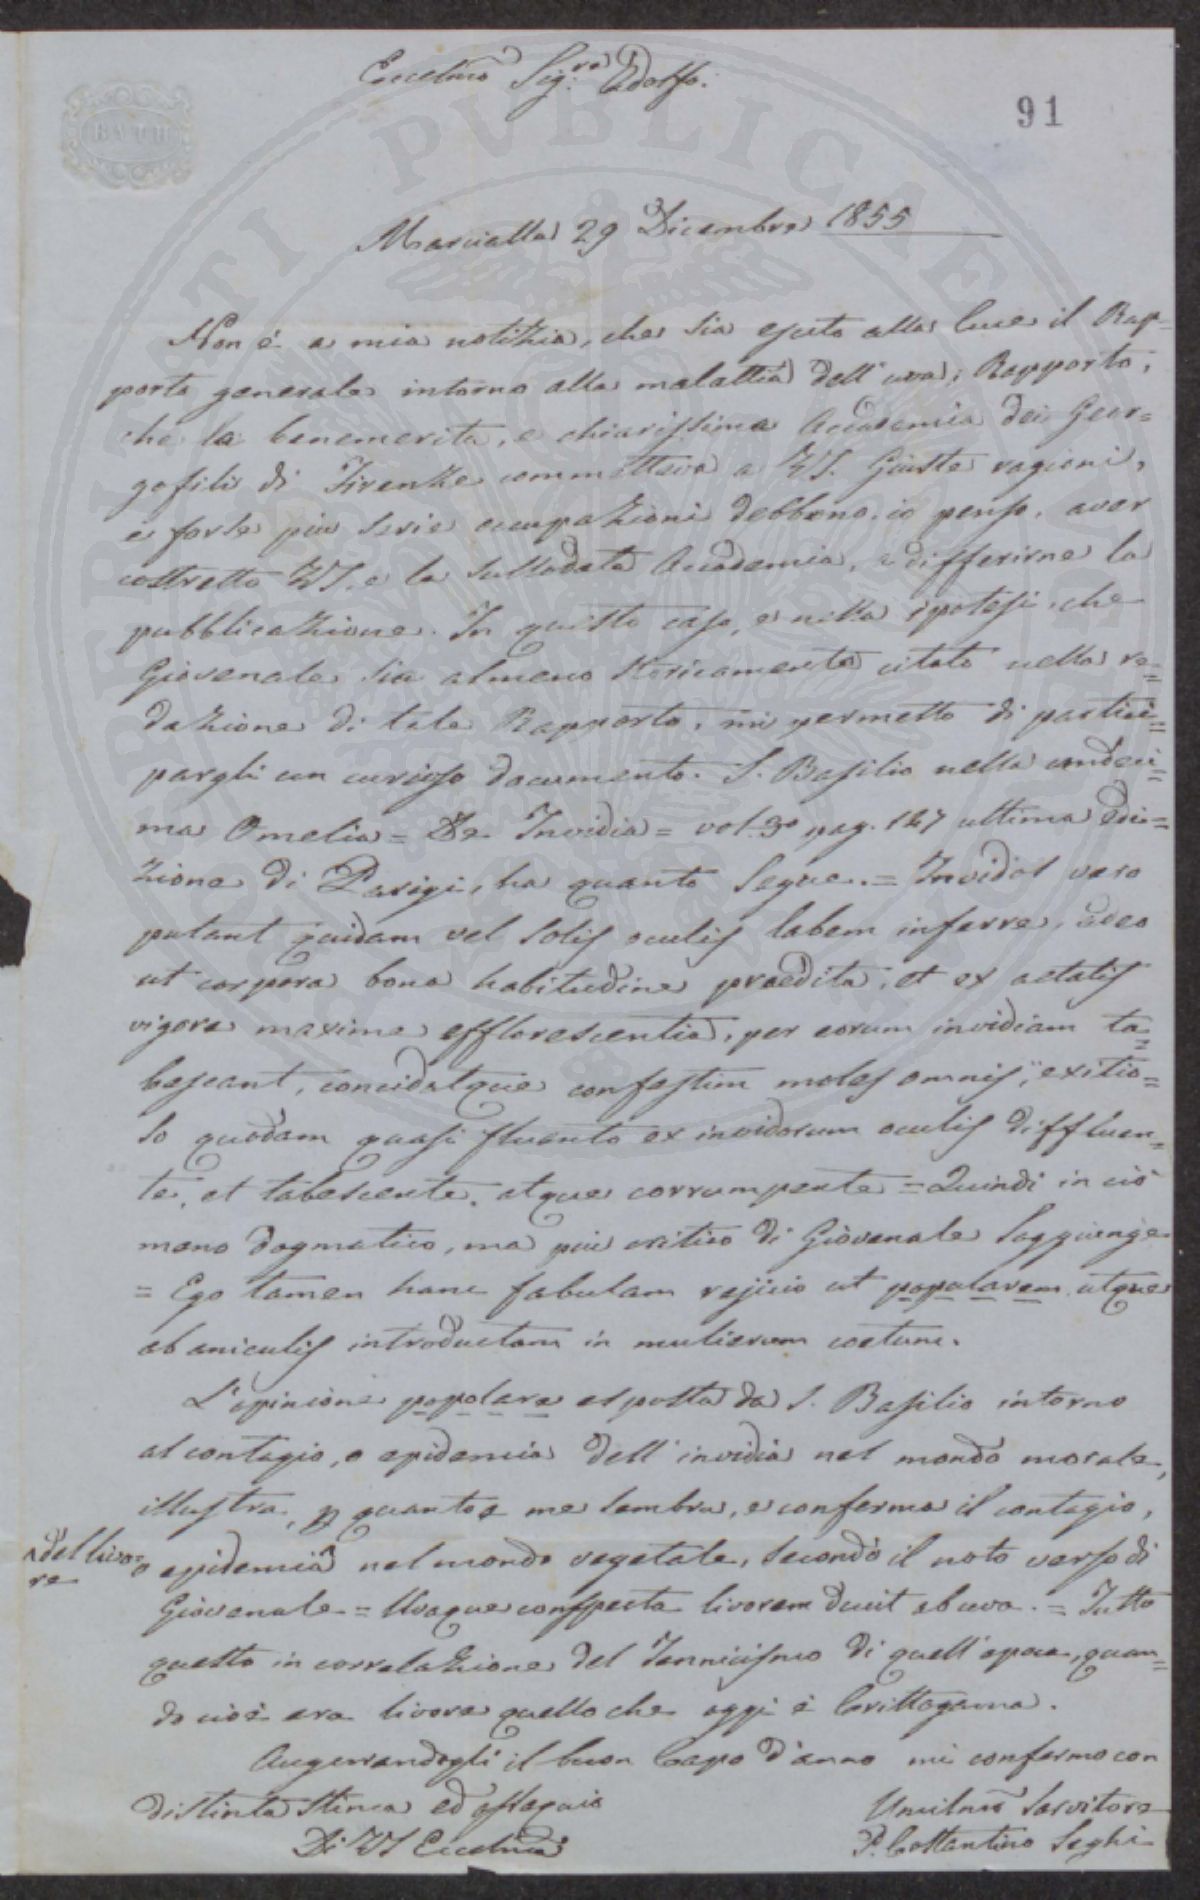 Eccelmo Sig.re Adolfo.
91
BATH
PROSPERITATI PUBLICAE AUGENDAE
Marcialla 29 Dicembre 1855
Non è a mia notizia, che sia escito alla luce il Rap=
porto generale intorno alla malattia dell'uva; Rapporto,
che la benemerita, e chiarissima Accademia dei Geor=
gofili di Firenze commetteva a VS. Giuste ragioni,
e forse più serie occupazioni debbono, io penso, aver
costretto VS. e la sullodata Accademia, a differirne la
pubblicazione. In questo caso, e nella ipotesi, che
Giovenale sia almeno storicamente citato nella re=
dazione di tale Rapporto, mi permetto di parteci=
pargli un curioso documento. S. Basilio nella undeci=
ma Omelia = De Invidia = vol. 3o pag. 127 ultima edi=
zione di Parigi, ha quanto segue. = Invidos vero
putant quidam vel solis oculis labem inferre, adeo
ut corpora bona habitudine praedita, et ex aetatis
vigore maxime efflorescentia, per eorum invidiam ta=
bescant, concidatque confestim moles omnis, exitio=
so quodam quasi fluento ex invidorum oculis diffluen=
te, et tabescente, atque corrumpente = Quindi in ciò
meno dogmatico, ma più critico di Giovenale soggiunge
= Ego tamen hanc fabulam rejicio ut popularem, utque
ab aniculis introductam in mulierum coetum.
L'opinione popolare esposta da S. Basilio intorno
al contagio, o epidemia dell'invidia nel mondo morale,
illustra, p quanto a me sembra, e conferma il contagio,
o epidemia nel mondo vegetale, secondo il noto verso di
^ del livo=
re
Giovenale = Uvaque conspecta livorem ducit ab uva. = Tutto
questo in correlazione del Tennicismo di quell'epoca, quan=
do cioè era livore quello che oggi è Crittogama.
Augurandogli il buon Capo d'anno mi confermo con
distinta stima ed ossequio
Di VS Eccelma
Umilmo Servitore
P. Costantino Seghi